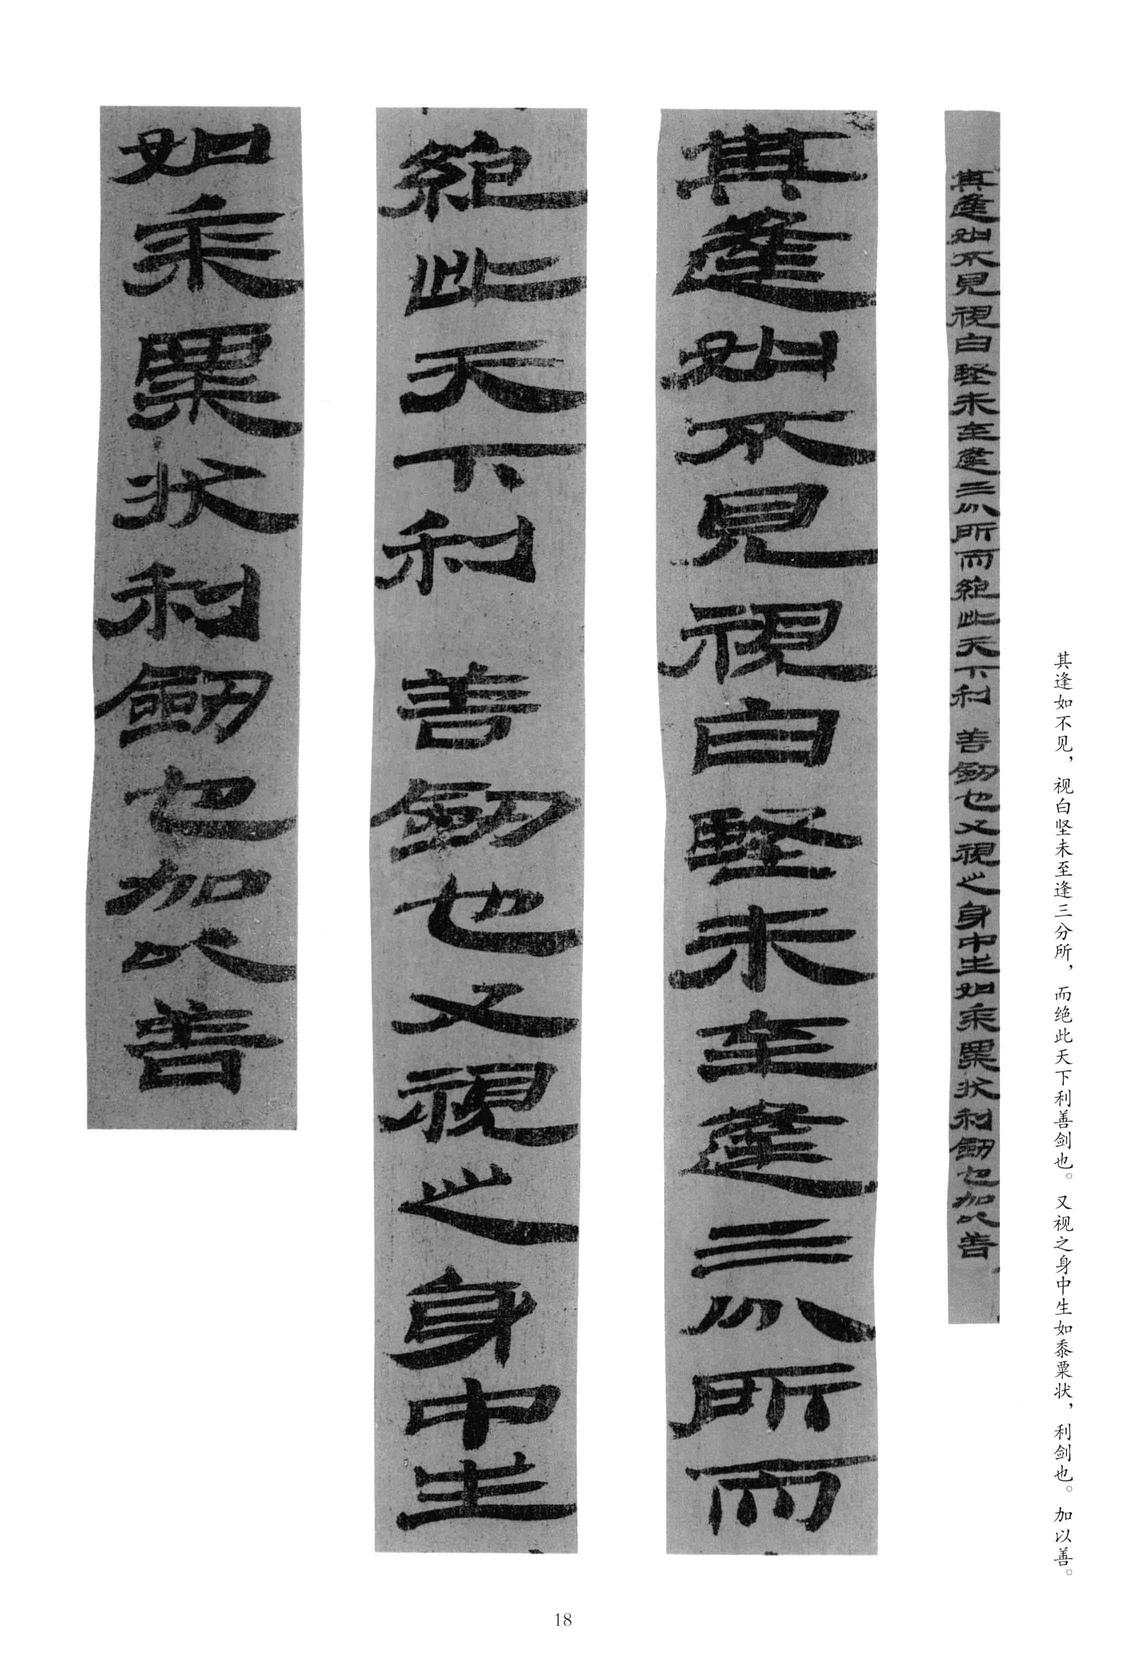 其逢如不见，视白坚未至逢三分所，而绝此天下利善剑也。又视之身中生如黍粟状，利剑也。加以善。
其逢如不見視白堅未至逢三分所而絕此天下利 善劒也又視之身中生如黍粟狀利劒也加以善
其逢如不見視白堅未至逢三分所而
絕此天下利 善劒也又視之身中生
如黍粟狀利劒也加以善
18